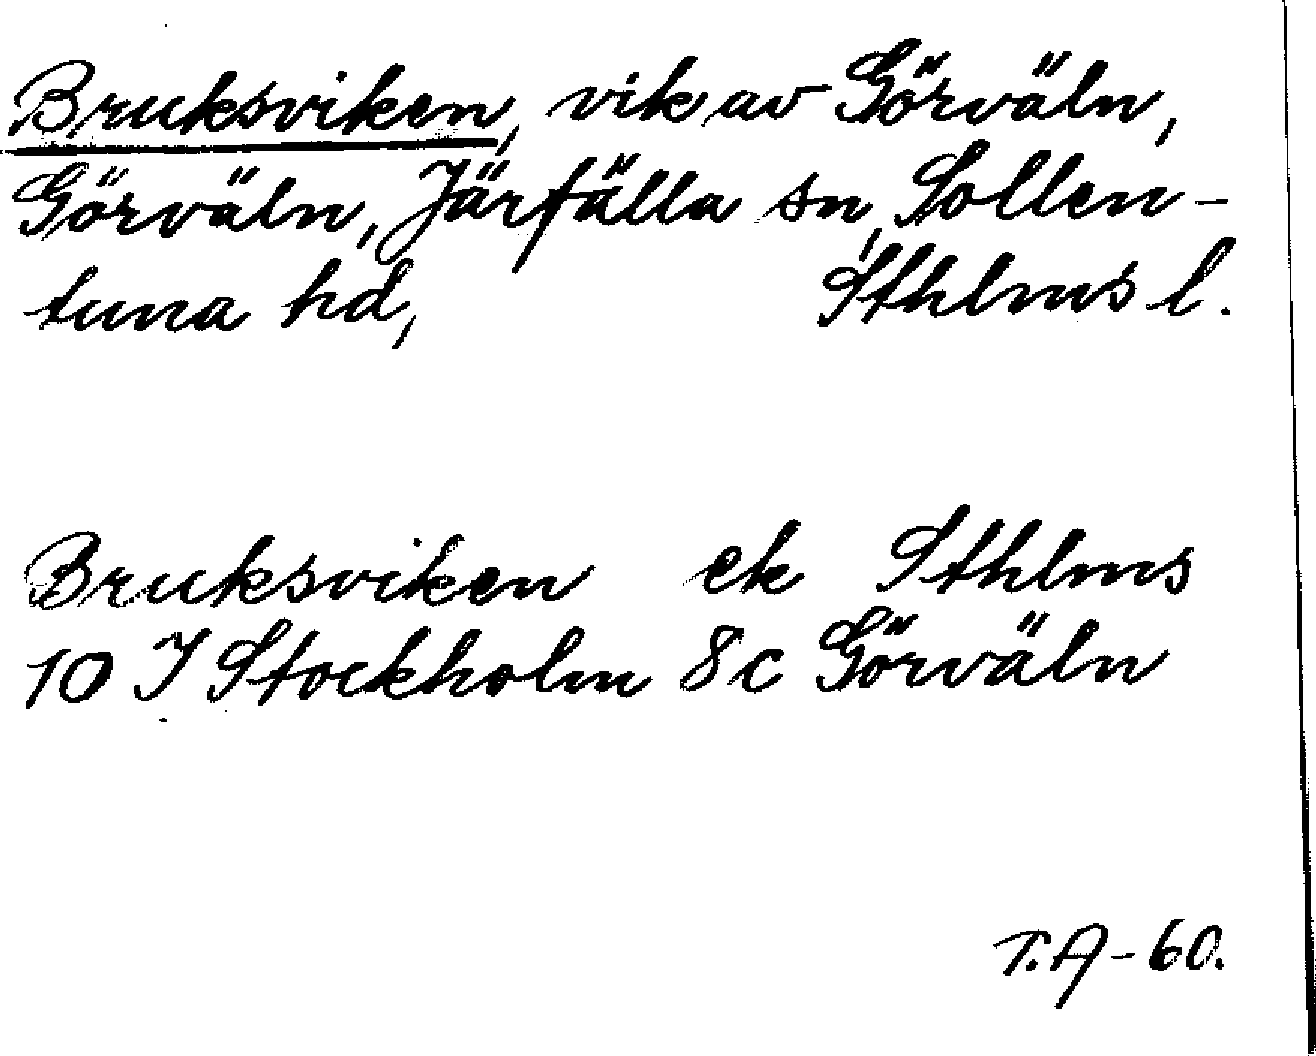 Bruksviken, vik av Görväln,
Görväln, Järfälla sn, Sollen-
tuna hd, Sthlms l.
Bruksviken ek Sthlms
10 I Stockholm 8c Görväln
T.A-60.